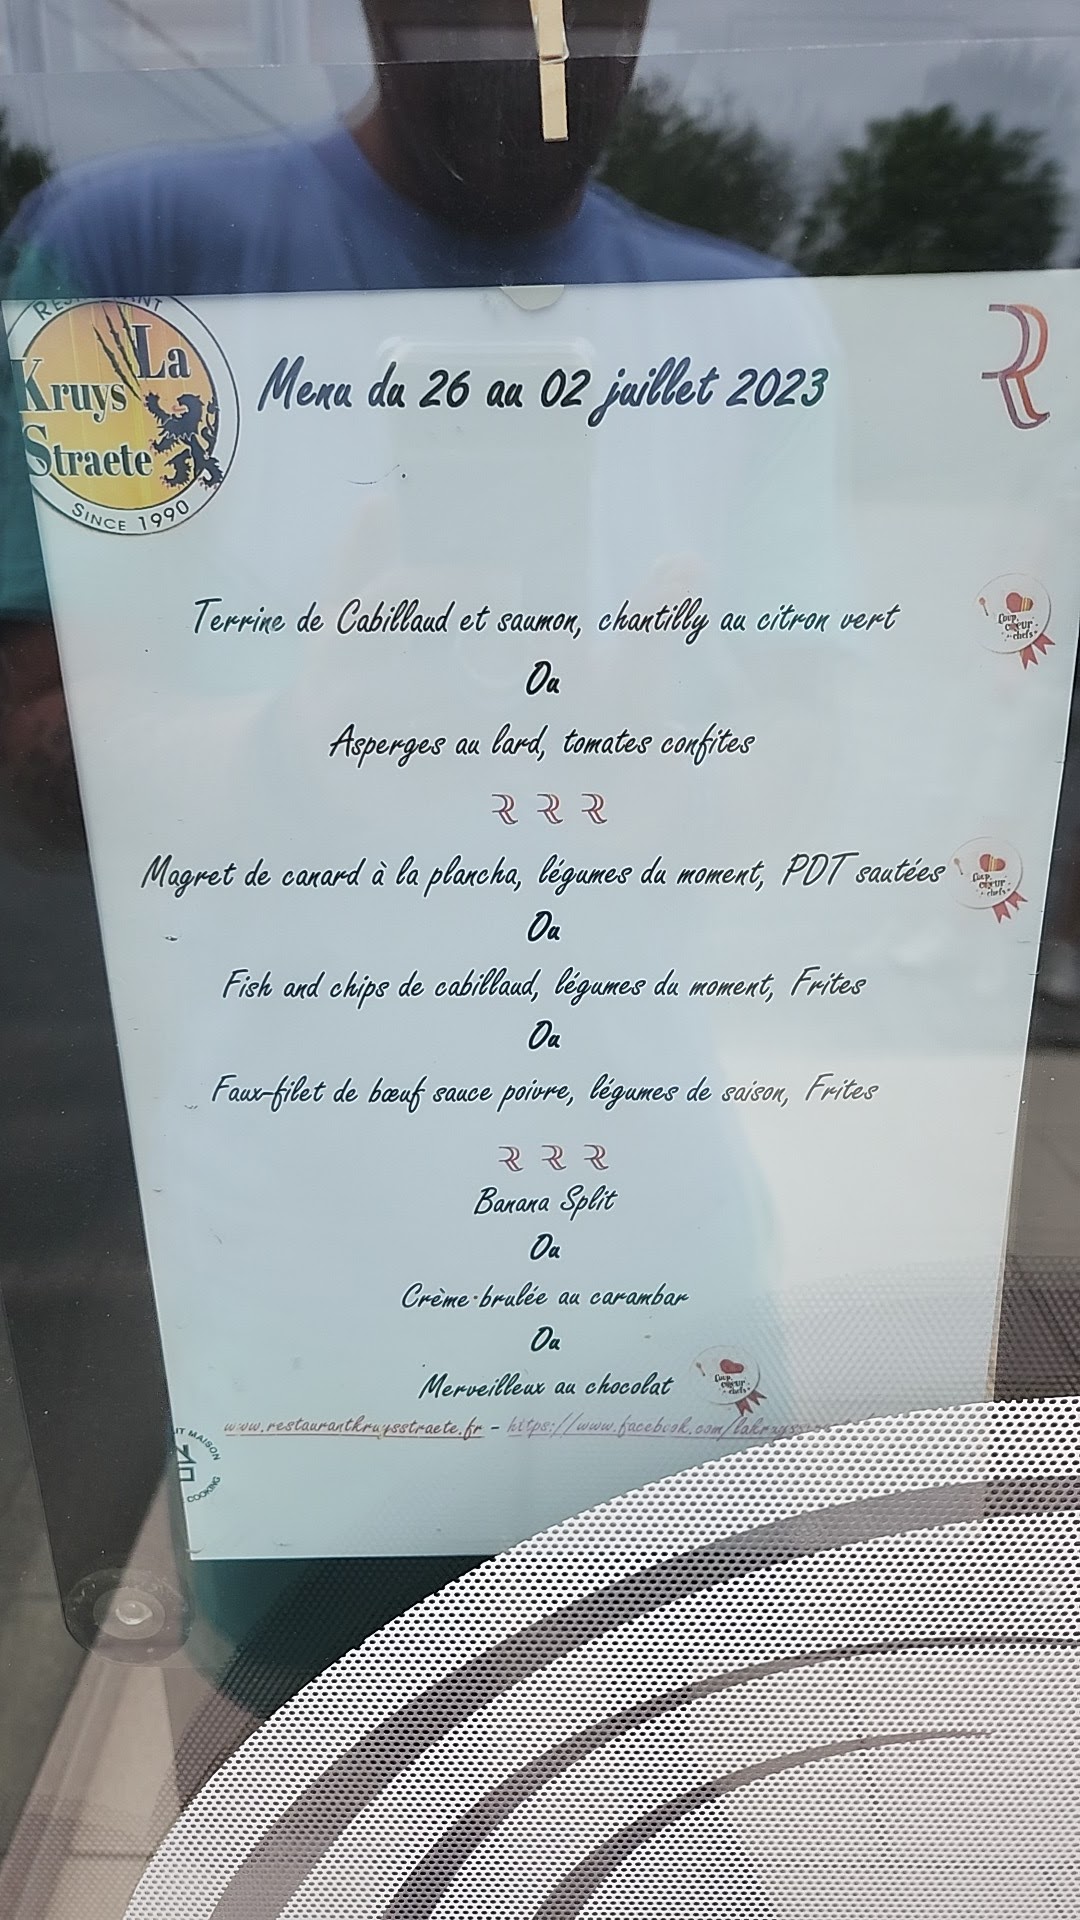 RESTAURANT
La
Kruys
Straete
SINCE 1990
Menu du 26 au 02 juillet 2023
Terrine de Cabillaud et saumon, chantilly au citron vert
Coup
cœur
chefs
Ou
Asperges au lard, tomates confites
R R R
Magret de canard à la plancha, légumes du moment, PDT sautées
Coup
cœur
chefs
Ou
Fish and chips de cabillaud, légumes du moment, Frites
Ou
Faux-filet de bœuf sauce poivre, légumes de saison, Frites
R R R
Banana Split
Ou
Crème-brulée au carambar
Ou
Merveilleux au chocolat
Coup
cœur
chefs
www.restaurantkruysstraete.fr - https://www.facebook.com/lakruyss
IT MAISON
COOKING